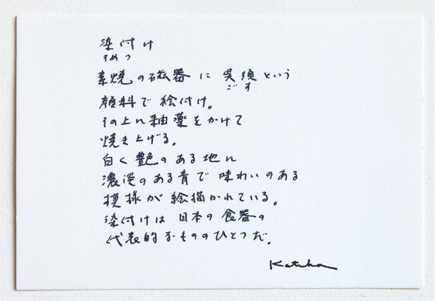 染付け
そめつ
素焼の磁器に呉須という
ごす
顔料で絵付け。
その上に釉薬をかけて
焼き上げる。
白く艶のある地に
濃淡のある青で味わいのある
模様が絵描かれている。
染付けは日本の食器の
代表的なもののひとつだ。